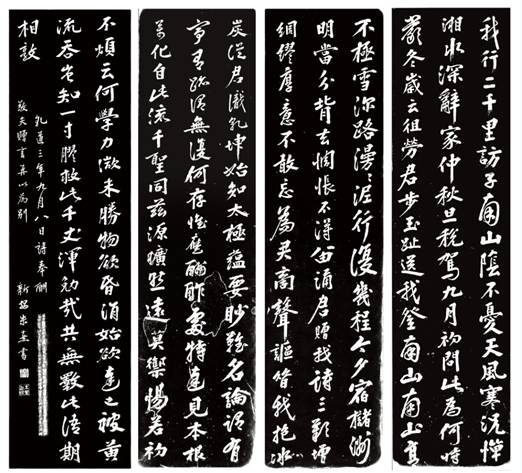 我行二千里訪子南山陰不憂天風寒況憚
湘水深辭家仲秋旦稅駕九月初問此為何時
嚴冬歲云徂勞君步玉趾送我登南山南山高
不極雪深路漫漫泥行復幾程今夕宿櫧洲
明當分背去惆悵不得留誦君贈我詩三歎增
綢繆厚意不敢忘為君商聲謳昔我抱冰
炭從君識乾坤始知太極蘊要眇難名論謂有
寧有跡謂無復何存惟應酬酢處特達見本根
萬化自此流千聖同茲源曠然遠莫禦惕若初
不煩云何學力微未勝物欲昏涓始欲達已被黃
流吞豈知一寸膠救此千丈渾勉哉共無斁此語期
相敦
乾道三年九月八日詩奉酬
敬夫贈言并以為別
新安朱熹書